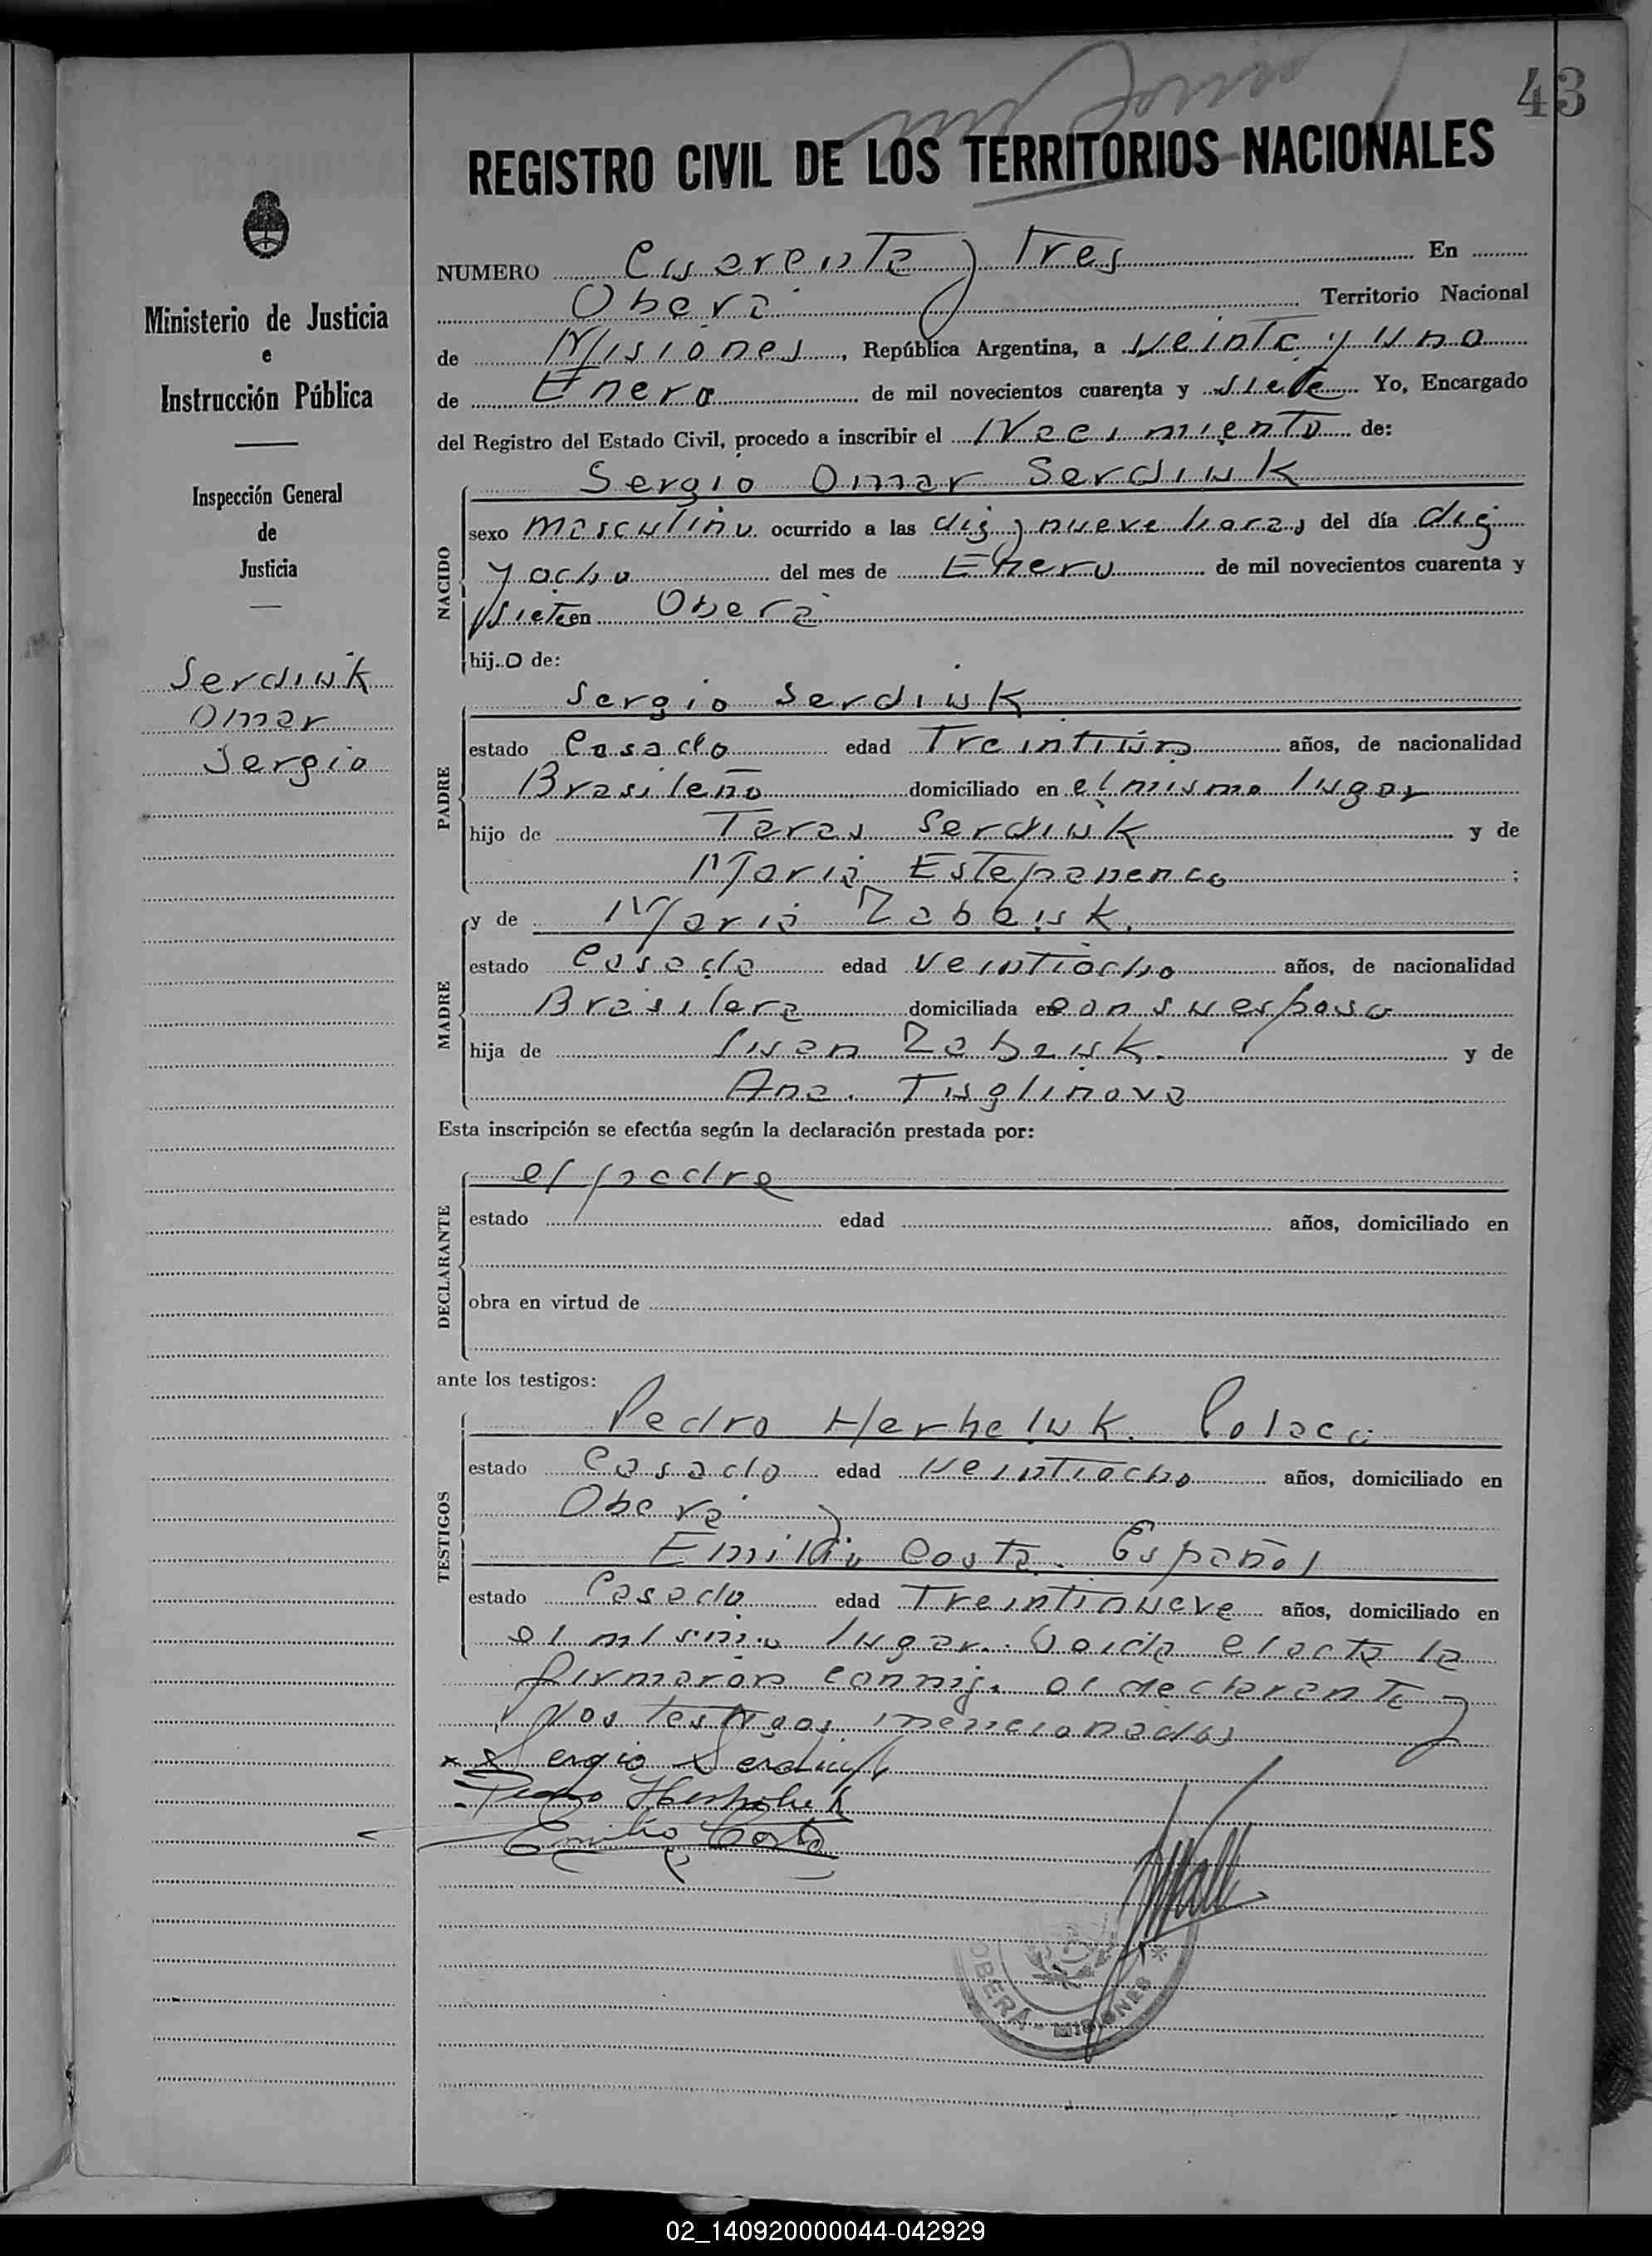 43
REGISTRO CIVIL DE LOS TERRITORIOS NACIONALES
NUMERO Cuarenta y Tres En
Oberá Territorio Nacional
de Misiones, República Argentina, a veinte y uno
de Enero de mil novecientos cuarenta y siete Yo, Encargado
del Registro del Estado Civil, procedo a inscribir el Nacimiento de:
Sergio Omar Serdiuk
NACIDO
sexo masculino ocurrido a las diez y nueve horas del día diez
y ocho del mes de Enero de mil novecientos cuarenta y
siete en Oberá
hijo de:
Sergio Serdiuk
PADRE
estado Casado edad Treintiún años, de nacionalidad
Brasileño domiciliado en el mismo lugar
hijo de Taras Serdiuk y de
María Estepanenco;
y de María Zabaiuk.
MADRE
estado Casada edad veintiocho años, de nacionalidad
Brasilera domiciliada en con su esposo
hija de Zabaiuk. y de
Ana Tuglinova
Esta inscripción se efectúa según la declaración prestada por:
el padre
DECLARANTE
estado edad años, domiciliado en
obra en virtud de
ante los testigos:
Pedro Polaco
TESTIGOS
estado Casado edad veintiocho años, domiciliado en
Oberá y
Emilio Costa. Español
estado Casado edad Treintinueve años, domiciliado en
el mismo lugar. el acta la
firmaron conmigo el declarante y
los testigos mencionados
Sergio Serdiuk
Pedro
Emilio Costa
OBERA - MISIONES
Ministerio de Justicia
e
Instrucción Pública
Inspección General
de
Justicia
Serdiuk
Omar
Sergio
02_140920000044-042929